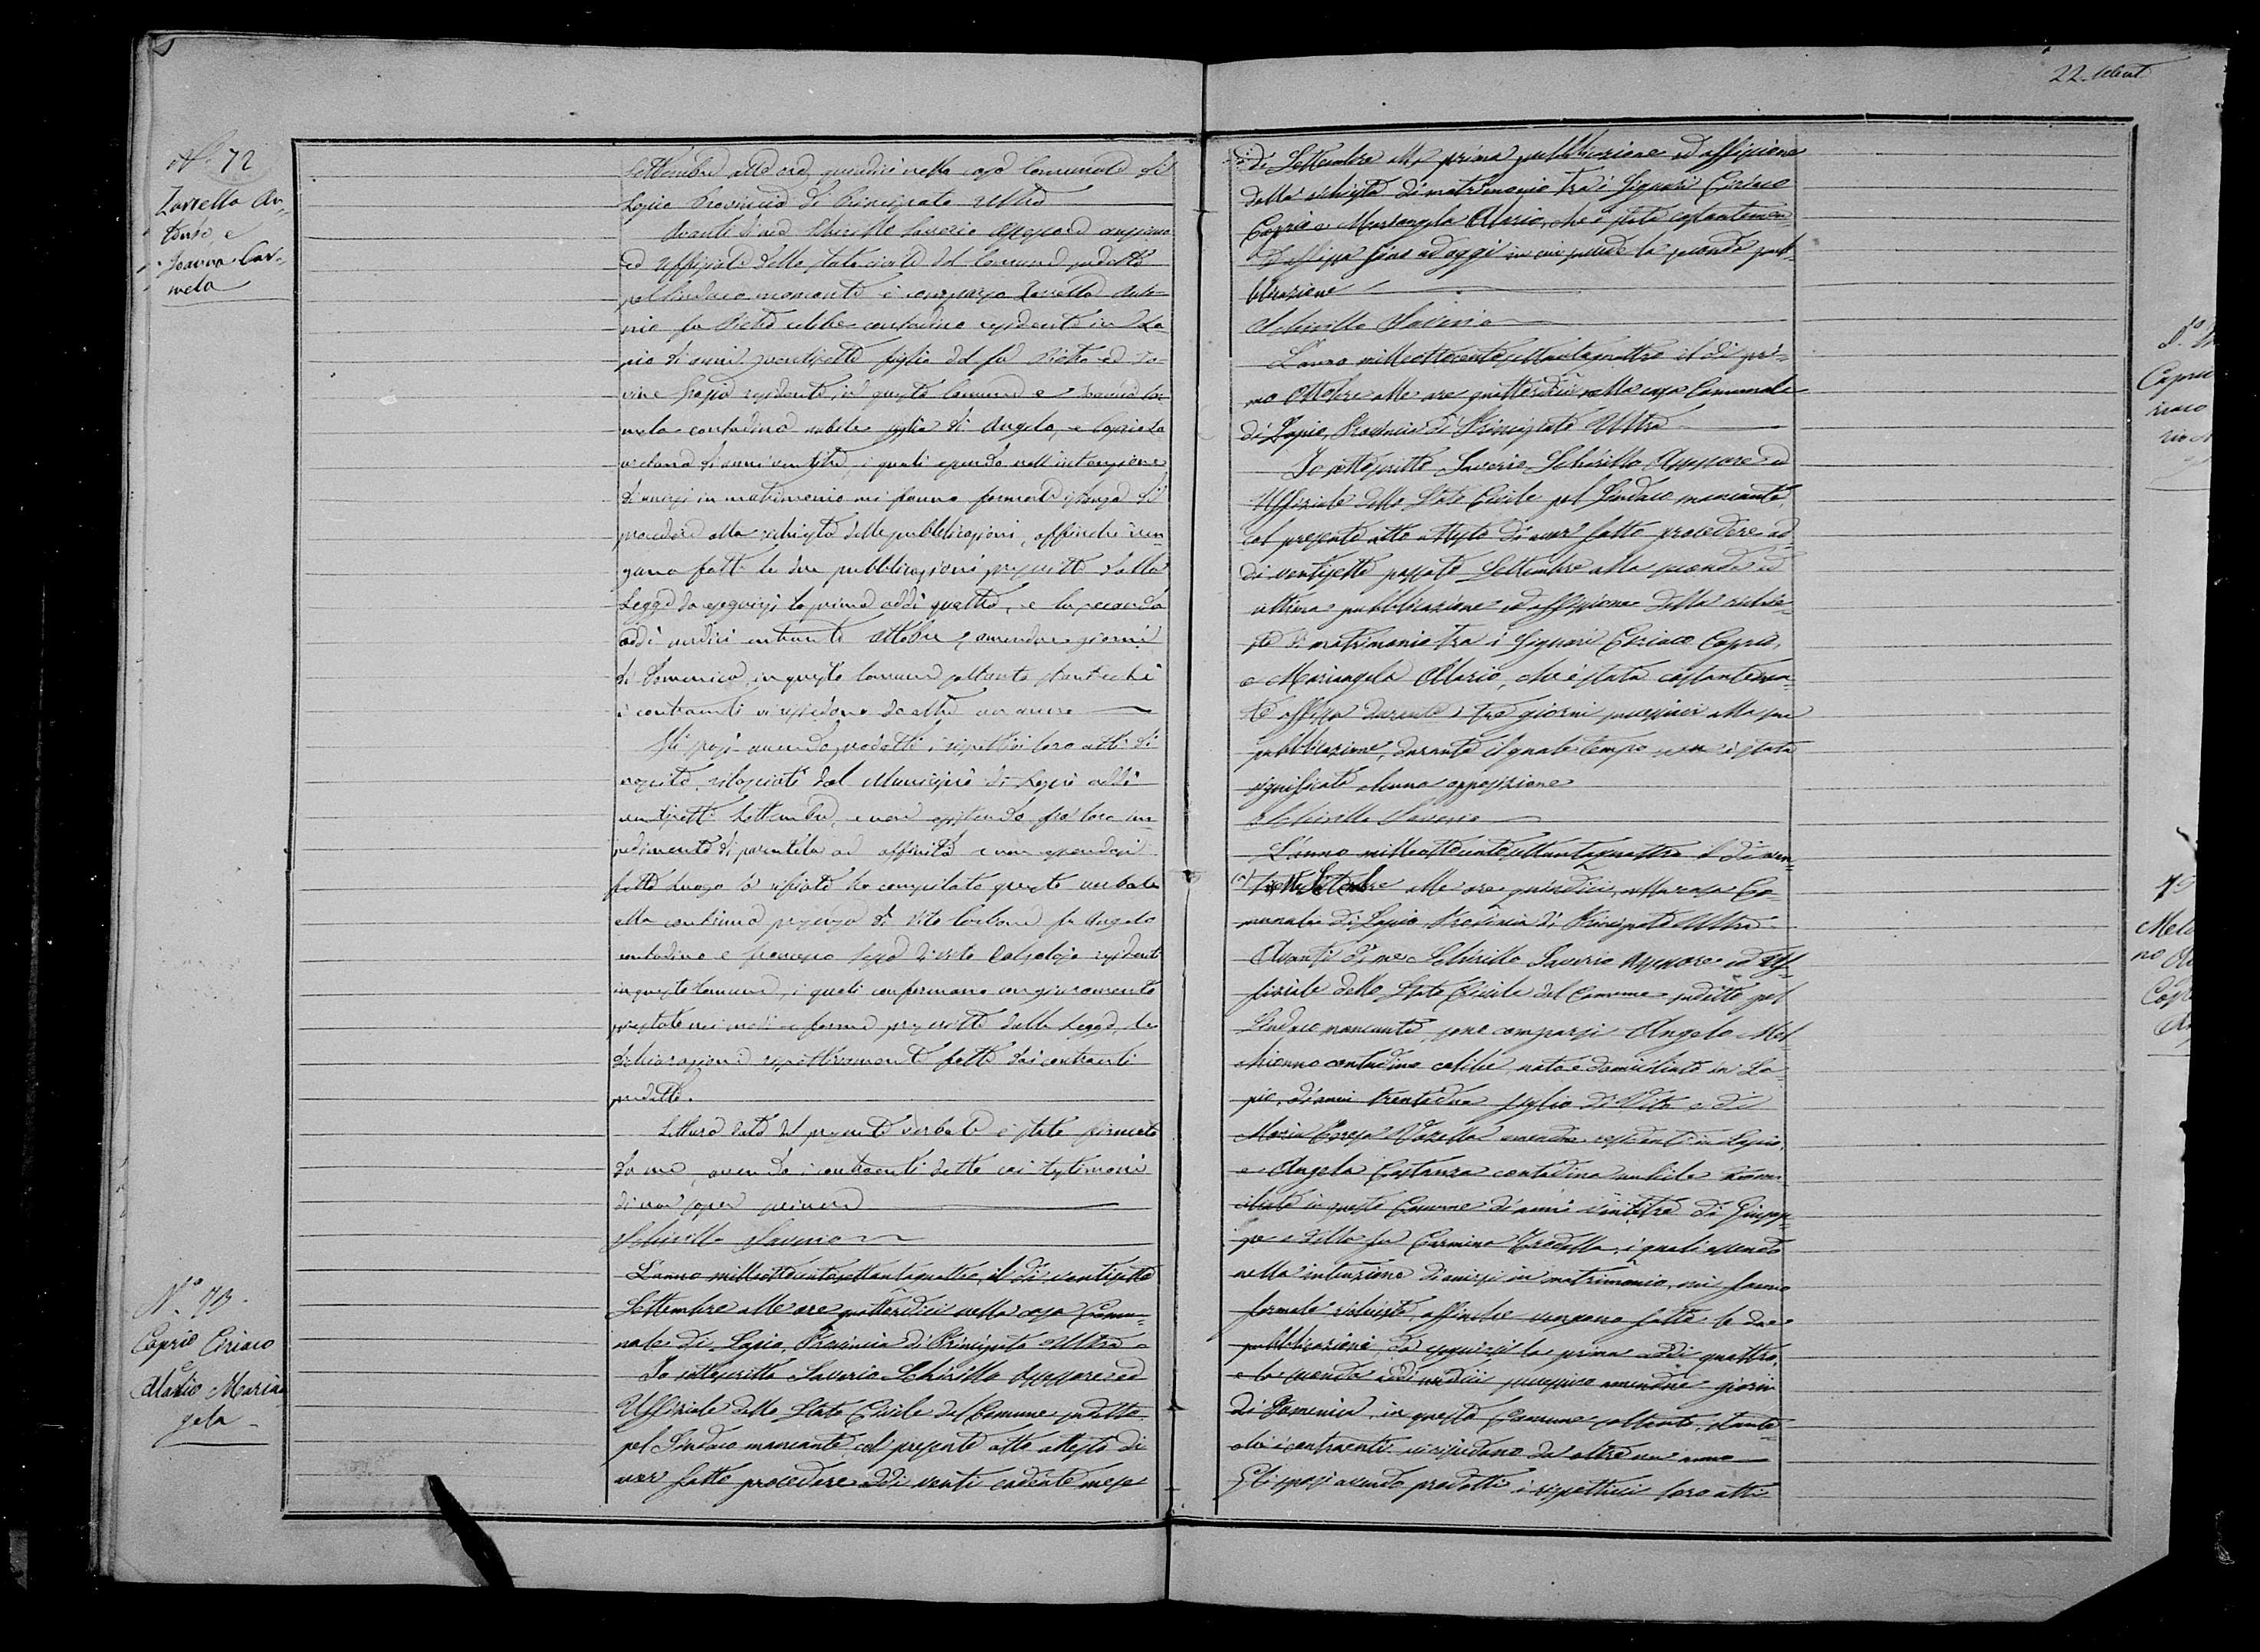 22
N.° 72
Zarrella An-
tonio, e
Iarrna Car-
mela
Settembre alle ore quindici nella casa Comunale di
Lapio Provincia di Principato Ultra
Avanti di me Schirillo Saverio Assessore anziano
ed Uffiziale dello stato civile del Comune suddetto
pel Sindaco mancante è comparso Zarrella Anto-
nio fu Pietro celibe contadino residente in La-
pio di anni ventisette figlio del fu Pietro ed Io-
residente in questo Comune e Car-
mela contadina nubile figlia di Angelo, e Caprio La
di anni ventitre, i quali essendo nell'intenzione
di unirsi in matrimonio mi fanno formale istanza di
procedere alla richiesta delle pubblicazioni, affinchè ven-
gano fatte le due pubblicazioni prescritte dalla
Legge da eseguirsi la prima addì quattro, e la seconda
addì undici entrante Ottobre, amendue giorni
di Domenica, in questo Comune soltanto stantechè
i contraenti vi risiedono da oltre un anno
Gli sposi avendo prodotti i rispettivi loro atti di
nascita, rilasciati dal Municipio di Lapio addì
ventisette Settembre, e non esistendo fra loro im-
pedimento di parentela od affinità e non essendosi
fatto luogo a rifiuto ho compilato questo verbale
alla continua presenza di Vito Carbone fu Angelo
contadino e Francesco di Vito Calzolajo residenti
in questo Comune, i quali confermano con giuramento
prestato nei modi e forme prescritte dalla Legge, le
dichiarazioni rispettivamente fatte dai contraenti
predetti.
Lettura data del presente verbale è stato firmato
da me, avendo i contraenti detto coi testimoni
di non saper scrivere
Schirillo Saverio
N.° 73
Caprio Ciriaco
e
Olario Marian-
gela
L'anno milleottocentosettantaquattro, il dì ventisette
Settembre alle ore quattordici nella casa Comu-
nale di Lapio, Provincia di Principato Ultra
Io sottoscritto Saverio Schirillo Assessore ed
Uffiziale dello Stato Civile del Comune suddetto
pel Sindaco mancante col presente atto attesto di
aver fatto procedere addì venti cadente mese
di Settembre alla prima pubblicazione ed affissione
della richiesta di matrimonio tra i Signori Ciriaco
Caprio e Mariangela Olario, che è stata costantemen-
te affissa fino ad oggi in cui succede la seconda pub-
blicazione
Schirillo Saverio
L'anno milleottocentosettantaquattro il dì pri-
mo Ottobre alle ore quattordici nella casa Comunale
di Lapio, Provincia di Principato Ultra
Io sottoscritto Saverio Schirillo Assessore ed
Uffiziale dello Stato Civile pel Sindaco mancante,
col presente atto attesto di aver fatto procedere ad-
dì ventisette passato Settembre alla seconda ed
ultima pubblicazione ed affissione della richie-
sta di matrimonio tra i Signori Ciriaco Caprio,
e Mariangela Olario, che è stata costantemen-
te affissa durante i tre giorni successivi alla sua
pubblicazione, durante il quale tempo non è stata
significata alcuna opposizione
Schirillo Saverio
L'anno milleottocentosettantaquattro il dì ven-
alle ore quindici, nella casa Co-
munale di Lapio Provincia di Principato Ultra
Avanti di me Schirillo Saverio Assessore ed Uf-
fiziale dello Stato Civile del Comune suddetto pel
Sindaco mancante, sono comparsi Angelo Mel-
chionno contadino celibe, nato e domiciliato in La-
pio, di anni trentadue figlio di Vito e di
Maria Teresa amendue residenti in Lapio,
e Angela Costanza contadina nubile domi-
ciliata in questo Comune di anni ventitre di Giusep-
pe e della fu Carmina i quali essendo
nella intenzione di unirsi in matrimonio, mi fanno
formale richiesta, affinchè vengano fatte le due
pubblicazioni, da eseguirsi la prima addì quattro,
e la seconda addì undici successivo amendue giorni
di Domenica, in questo Comune soltanto, stante
che i contraenti vi risiedono da oltre un anno
Gli sposi avendo prodotti i rispettivi loro atti